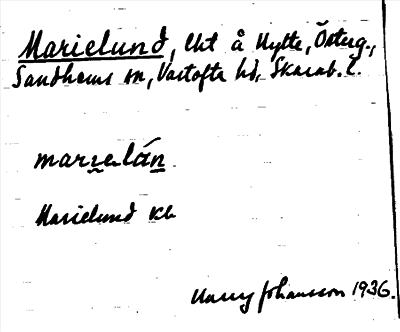 Marielund, lht å Nytte, Österg.,
Sandhems sn, Vartofta hd, Skarab. l.
marɪelán
Marielund kb
Harry Johansson 1936.